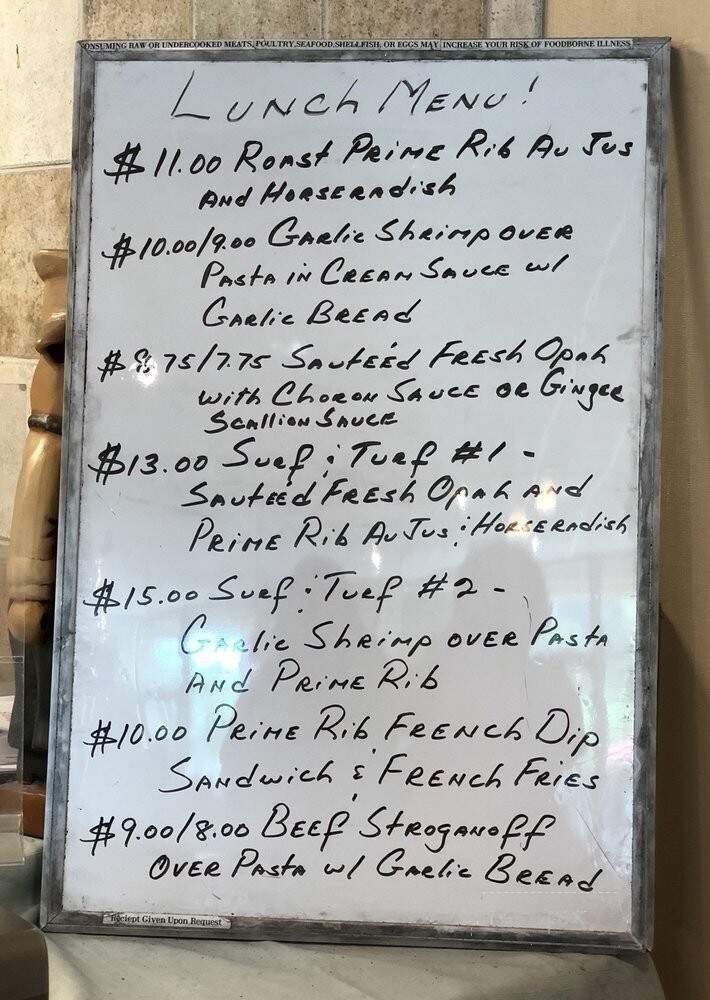 ONSUMING RAW OR UNDERCOOKED MEATS, POULTRY, SEAFOOD, SHELLFISH, OR EGGS MAY INCREASE YOUR RISK OF FOODBORNE ILLNESS
LUNCH MENU!
$11.00 ROAST PRIME RIB AU JUS
AND HORSERADISH
$10.00/9.00 GARLIC SHRIMP OVER
PASTA IN CREAM SAUCE W/
GARLIC BREAD
$8.75/7.75 SAUTEÉD FRESH OPAH
WITH CHORON SAUCE OR GINGER
SCALLION SAUCE
$13.00 SURF & TURF #1 -
SAUTEÉD FRESH OPAH AND
PRIME RIB AU JUS & HORSERADISH
$15.00 SURF & TURF #2 -
GARLIC SHRIMP OVER PASTA
AND PRIME RIB
$10.00 PRIME RIB FRENCH DIP
SANDWICH & FRENCH FRIES
$9.00/8.00 BEEF STROGANOFF
OVER PASTA W/ GARLIC BREAD
Reciept Given Upon Request